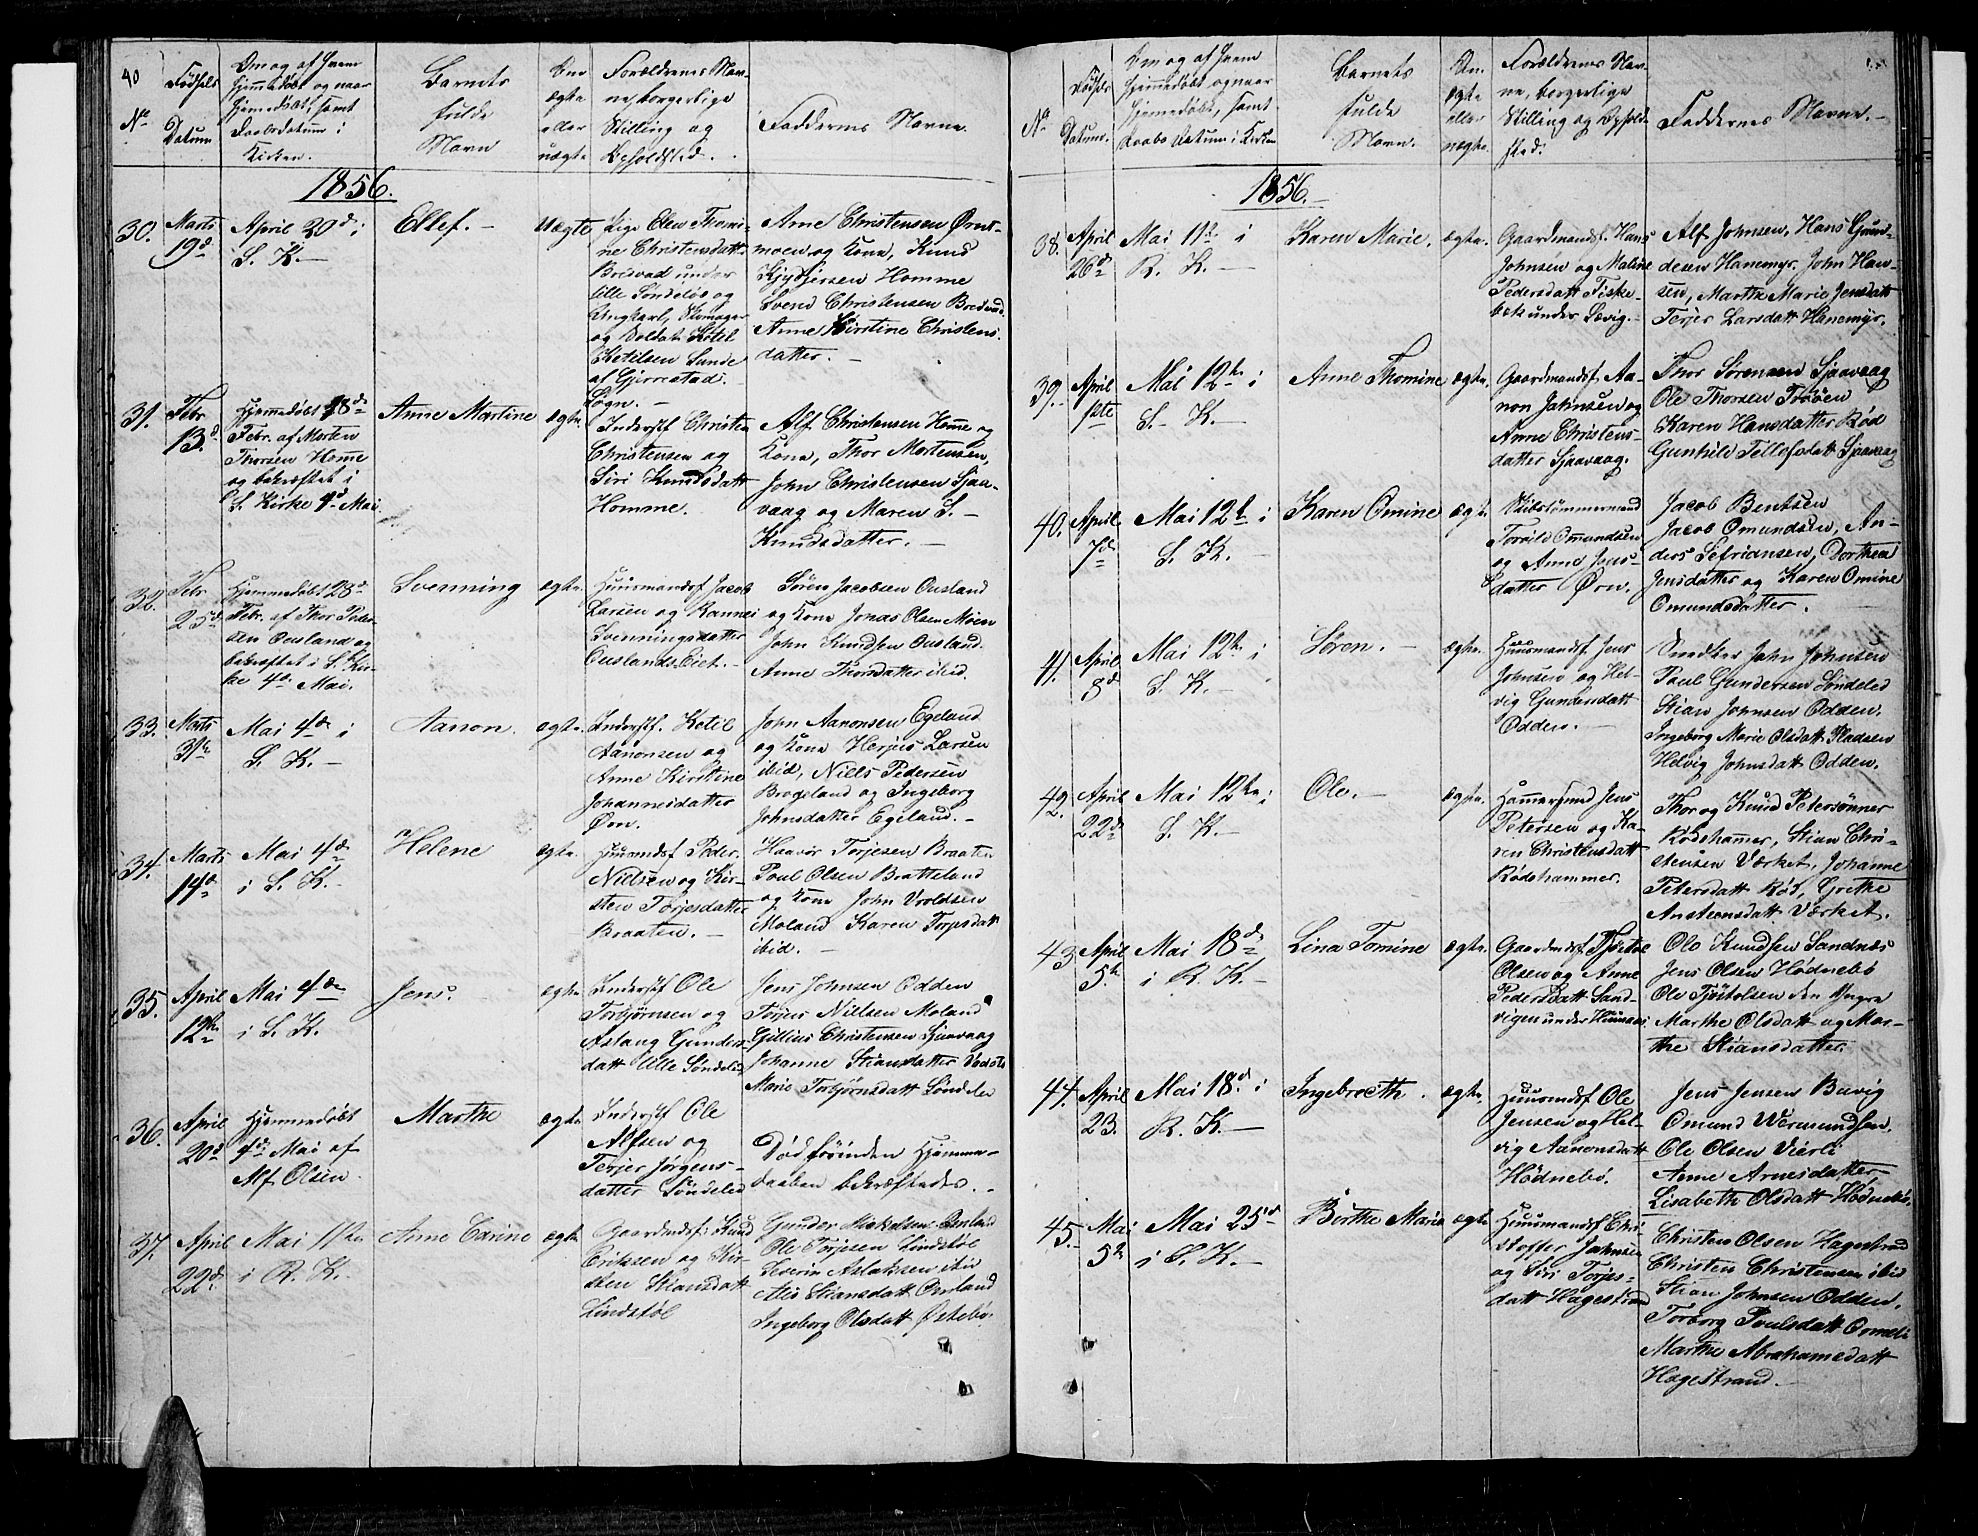 40
No
Fødsels
Datum
Om og af hvem
hjemmedøbt og naar
hjemedøbt, samt
Daabsdatum i
Kirken.
Barnets
fulde
Navn
Om
ægte
eller
uægte
Forældrenes Nav-
ne, borgerlige
Stilling og
Opholdsted.
Faddernes Navne.
1856.
30.
Marts
19d
April 20d i
S. K.
Ellef.
Uægte
Pige Elen Thomi-
ne Christensdatt
Bresvad under
lille Søndeløs og
Ungkarl, Skomager
og Soldat Ketil
Ketilsen Sunde
af Gjerrestad.
Søgn.
Arne Christensen Ørnt-
moen og Kone, Knud
Homme
Svend Christensen Bredvad
Anne Kirstine Christens
datter.
31.
Febr
13d
Hjemedøbt 18de
Febr. af Morten
Thorsen Home
og bekræftet i
S. Kirke 4d Mai
Anne Martine
ægte
Inderstf Christen
Christensen og
Siri Knudsdatt
Homme.
Alf Christensen Home og
Kone, Thor Mortensen,
John Christensen Sjaa-
vaag og Maren S.
Knudsdatter.
32.
Febr
25d
Hjemmedøbt 28d
Febr. af Thor Peder-
sen Ousland og
bekræftet i S. Kir-
ke 4de Mai.
Svenning
ægte.
Huusmandsf Jacob
Larsen og Rannei
Svenningsdatter
Ouslands Eiet.
Søren Jacobsen Ousland
og Kone Jonas Olsen Moen
John Knudsen Ousland.
Anne Thorsdatter ibid.
33.
Marts
31te
Mai 4de i
S. K.
Aanon.
ægte.
Inderstf. Ketil
Aanonsen og
Anne Kirstine
Johannesdatter
Ørn.
John Aanonsen Egeland
og Kone Herjus Larsen
ibid, Niels Pedersen
Brogeland og Ingeborg
Johnsdatter Egeland.
34.
Marts
14d
Mai 4de
i S. K.
Helene
ægte.
Huusmdsf Peder
Nielsen og Kir-
sten Torjesdatter
Braaten.
Haavor Torjesen Braaten
Poul Olsen Bratteland
og Kone John Uroldsen
Moland Karen Torjesdatt
ibid.
35.
April
12te
Mai 4de
i S. K.
Jens.
ægte
Inderstf Ole
Torbjørnsen og
Aslaug Gunders-
datt lille Søndeled
Jens Johnsen Odden
Torjus Nielsen Moland
Gillius Christensen Sjaavaag
Johanne Stiansdatter
Marie Torbjørnsdatt Søndeler
36.
April
20d
Hjemmedøbt
4de Mai af
Alf Olsen.
Marthe
ægte
Inderstf Ole
Alfsen og
Terjer Jørgens-
datter Søndeled
Død førinden Hjemme-
daaben bekræftedes.
37.
April
22d
Mai 11te
i R. K.
Anne Carine
ægte
Gaardmdsf: Knud
Eriksen og Kir-
sten Stiansdatt
Lindstøl
Gunder Mikelsen Omland
Ole Torjesen Lindstøl
Severin Aslaksen ibid
Alis Stiansdatt Omland
Ingeborg Olsdatt Østebø.
No
Fødsels
Datum.
Om og af hvem
hjemmedøbt og naar
hjemedøbt, samt
Daabs Datum i Kirken
Barnets
fulde
Navn.
Om
ægte
eller
uægte.
Forældrenes Nav-
ne, borgerlige
Stilling og Ophold-
sted.
Faddernes Navne.
1856.
38.
April
26d
Mai 11te i
R. K.
Karen Marie.
ægte.
Gaardmandsf. Hans
Johnsen og Maline
Pedersdatt Fiske-
bæk under Løvig.
Alf Johnsen, Hans Gund-
desen Hanemyr, John Han-
sen, Marthe Marie Jensdatt
Terjer Larsdatt Hanemyr.
39.
April
1ste
Mai 12te i
S. K.
Anne Thomine
ægte.
Gaardmandsf. Aa-
non Jahnsen og
Anne Christens-
datter Sjaavaag.
Thor Sørensen Sjaavaag
Ole Thorsen Trøoen
Karen Hansdatter Rød
Gunhild Tellefsdatt Sjaavaag
40.
April
7d
Mai 12te i
S. K.
Karen Omine
ægte.
Skibstømmermand
Torvild Omundsen
og Anne Jens-
datter Ørn.
Jacob Bentsen
Jacob Omundsen, An-
ders Sefriansen, Dorthea
Jensdatter og Karen Omine
Omundsdatter.
41.
April
8d
Mai 12te i
S. K.
Søren.
ægte.
Huusmandsf Jens
Johnsen og Hel-
vig Gundersdatt
Odden.
Snedker John Johnsen
Paul Gundersen Søndeled
Stian Johnsen Odden.
Ingeborg Marie Olsdatt Pladsen
Helvig Johnsdatt Odden.
42.
April
22d
Mai 12te i
S. K.
Ole.
ægte.
Hammersmed Jens
Petersen og Ka-
ren Christensdatt
Rødshammer.
Thor og Knud Petersønner
Rødshammer, Stian Chri-
stensen Værket, Johanne
Petersdatt Rød, Grethe
Anstensdatt Værket.
43
April
5te
Mai 18de
i R. K.
Lina Tomine
ægte.
Gaardmdsf Tjøstol
Olsen og Anne
Pedersdatt Sand-
vigen under
Ole Knudsen Sandnæs
Jens Olsen Hødnebø
Ole Tjøstolsen den Yngre
Marthe Olsdatt og Mar-
the Stiansdatter.
44.
April
23.
Mai 18d i
R. K.
Ingebreth.
ægte.
Huusmdsf Ole
Jensen og Hel-
vig Aanonsdatt
Hødnebø.
Jens Jensen Bævig
Omund Wermundsen.
Ole Olsen Vierli
Anne Arnesdatter
Lisabeth Olsdatt Hødnebø.
45.
Mai
5te
Mai 25de
i S. K.
Birthe Maria
ægte.
Huusmandsf Chri-
stoffer Jahnsen
og Siri Torjes-
datt Hagestrand
Christen Olsen Hagestrand
Christen Christensen ibid
Stian Johnsen Odden.
Torborg Poulsdatt
Marthe Abrahamsdatt
Hagestrand.